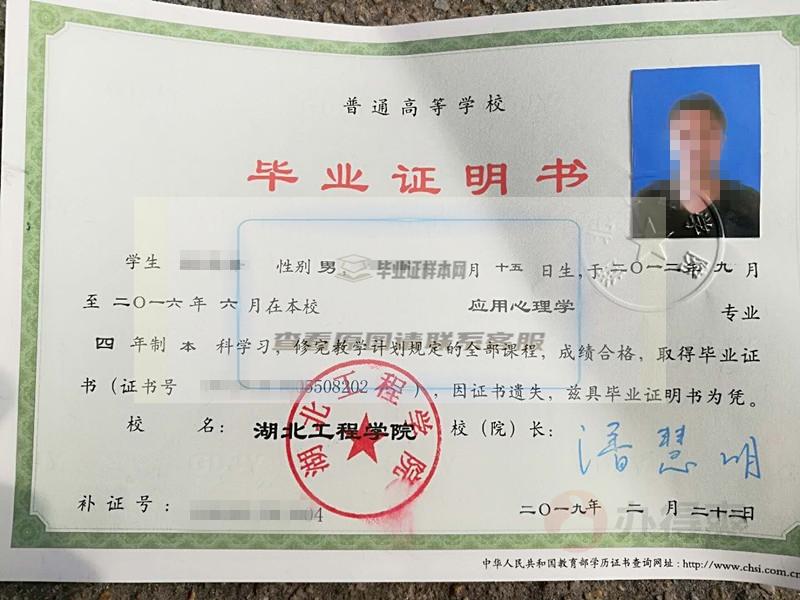 普通高等学校
毕业证明书
学生 性别 男， 月 十五 日生，于 二〇一二年 九 月
毕业证样本网
至 二〇一六年 六 月在本校 应用心理学 专业
查看原图请联系客服
四 年制 本 科学习，修完教学计划规定的全部课程，成绩合格，取得毕业证
书（证书号 03508202 ），因证书遗失，兹具毕业证明书为凭。
校 名： 湖北工程学院 校（院）长： 潘慧明
湖北工程学院
补证号： 04 二〇一九年 二 月 二十二日
中华人民共和国教育部学历证书查询网址：http://www.chsi.com.cn